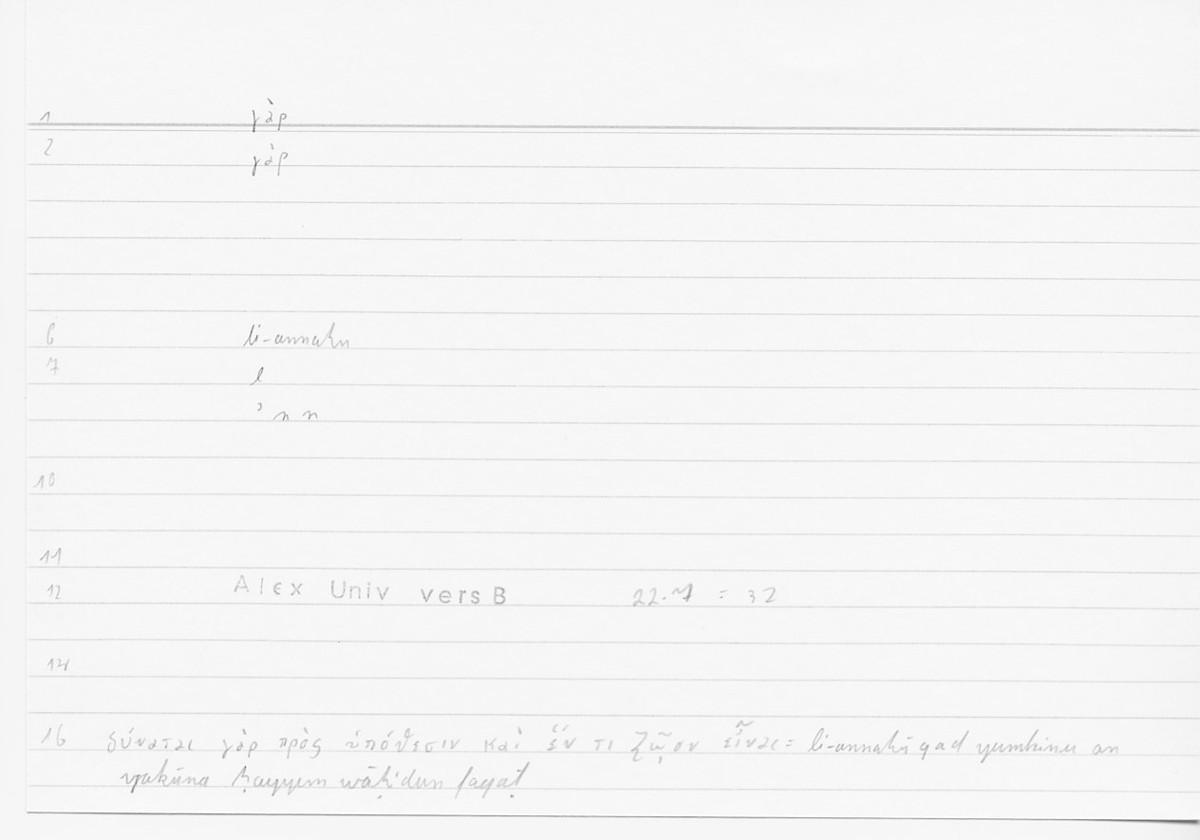 1 γὰρ
2 γὰρ
6 li-annahu
7 l
ʾ n n
10
11
12 Alex Univ vers B 22.7 = 32
14
16 δύναται γὰρ πρὸς ὑπόθεσιν καὶ ἕν τι ζῷον εἶναι = li-annahū qad yumkinu an
yakūna ḥayyun wāḥidun faqaṭ